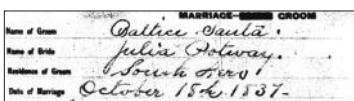 MARRIAGE— GROOM
Name of Groom Baltice Santā.
Name of Bride Julia Potway.
Residence of Groom South Hero
Date of Marriage October 15th 1837-